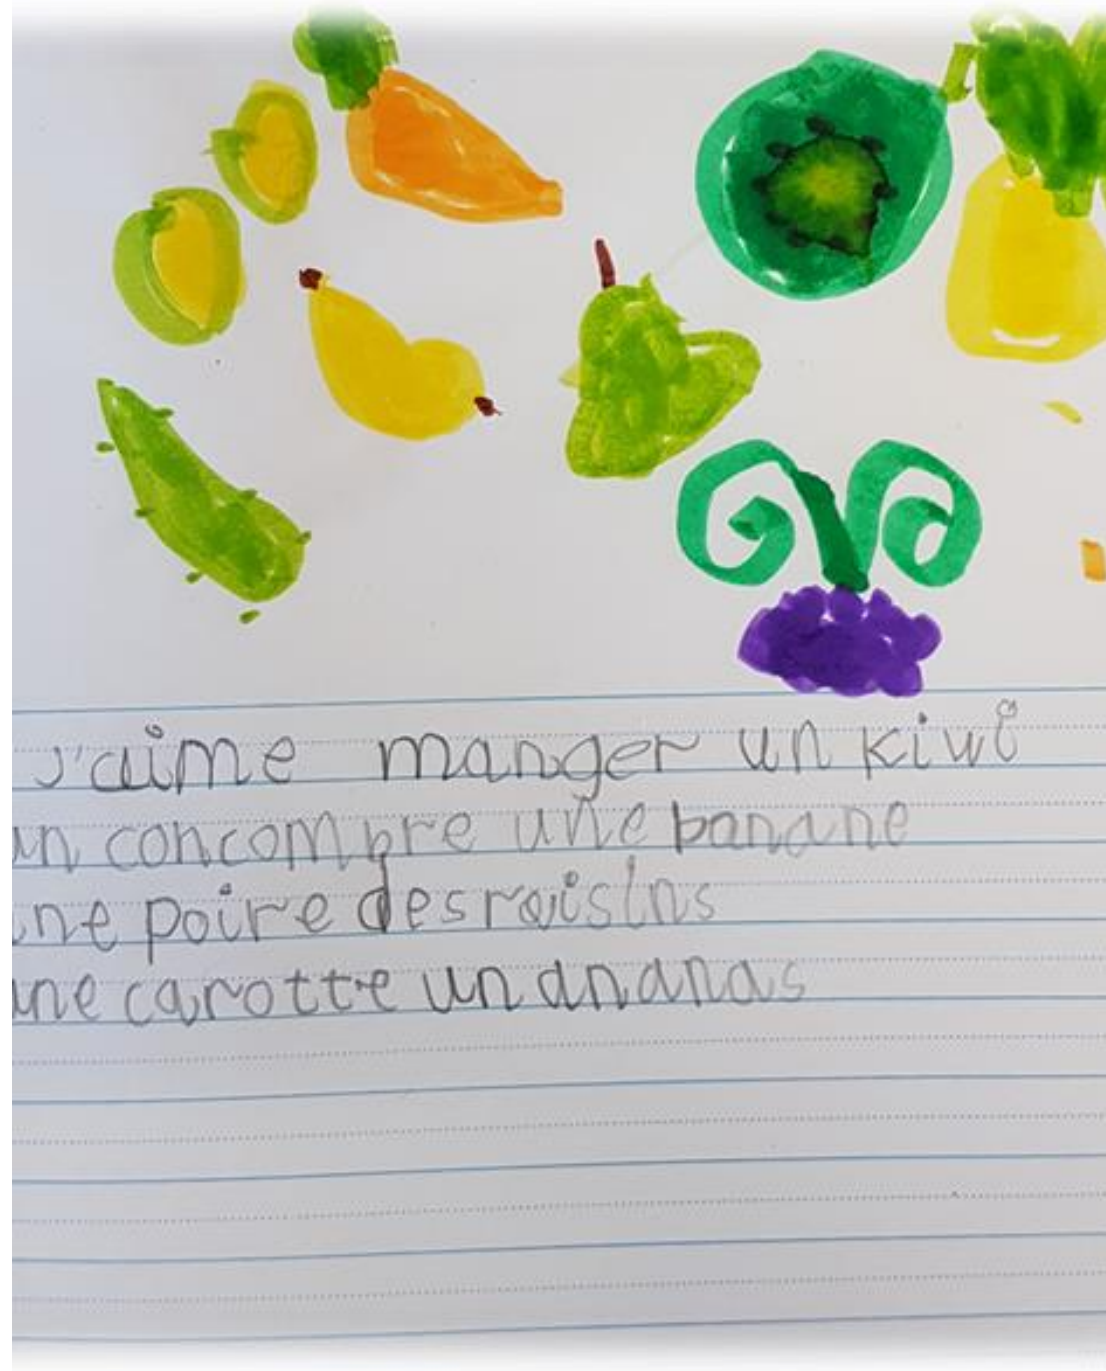 J'aime manger un kiwi
un concombre une banane
une poire des raisins
une carotte un ananas